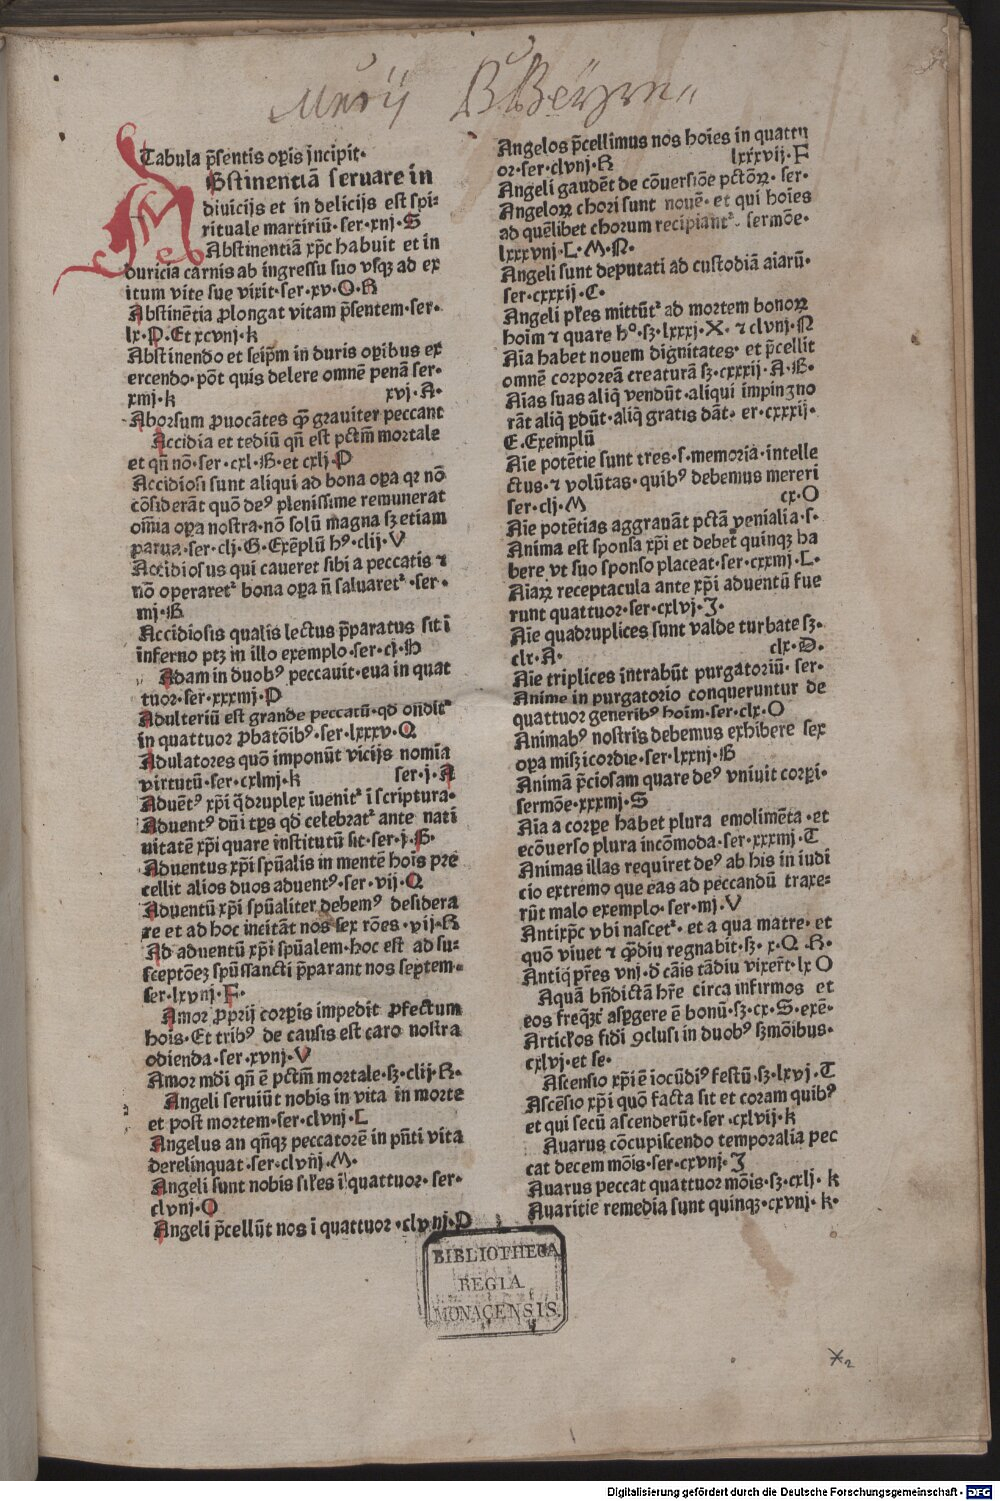 Tabula p̄sentis oꝑis jncipit·
Abstinentiā seruare in
diuicijs et in delicijs est spi⸗
rituale martiriū·ser·xiij·S
Abstinentiā xp̄c habuit et in
duricia carnis ab ingressu suo vsqꝫ ad ex
itum vite sue vixit·ser·xv·O·R
Abstinētia ꝓlongat vitam p̄sentem·ser·
lx·P·Et xcvnj·k
Abstinendo et seip̄m in duris oꝑibus ex
ercendo·pōt quis delere omnē penā ser·
xmj·k xvj·A·
Aborsum ꝓuocātes qͣꝫ grauiter peccant
Accidia et tediū qn̄ est pctm̄ mortale
et qn̄ nō·ser·cxl·B·et cxlj·P
Accidiosi sunt aliqui ad bona oꝑa qꝛ nō
cōsiderāt quō deꝰ plenissime remunerat
om̄ia oꝑa nostra·nō solū magna sꝫ etiam
parua·ser·clj·G·Exēplū hꝰ·clij·V
Accidiosus qui caueret sibi a peccatis ⁊
nō operaretᷣ bona oꝑa n̄ saluaretᷣ·ser·
mj·B
Accidiosis qualis lectus p̄paratus sit ī
inferno ptꝫ in illo exemplo·ser·cj·H
Adam in duobꝰ peccauit·eua in quat
tuor·ser·xxxmj·P
Adulteriū est grande peccatū·qd ondit᷑
in quattuor ꝓbatōibꝰ·ser·lxxxv·Q
Adulatores quō imponūt vicijs nomīa
virtutū·ser·cxlmj·k ser·j·A
Aduētꝰ xp̄i q̄druplex īuenit᷑ ī scriptura·
Aduentꝰ dn̄i tp̄s qd celebrat᷑ ante nati
uitatē xp̄i quare institutū sit·ser·j·B·
Aduentus xp̄i spūalis in mentē hoīs pre
cellit alios duos aduentꝰ·ser·vij·Q
Aduentū xp̄i spūaliter debemꝰ desidera
re et ad hoc incitāt nos sex rōes·vij·R
Ad aduentū xp̄i spūalem·hoc est ad su⸗
sceptōeꝫ spūssancti p̄parant nos septem⸗
ser·lxvnj·F·
Amor ꝓprij corꝑis impedit ꝓfectum
hoīs·Et tribꝰ de causis est caro nostra
odienda·ser·xvnj·V
Amor mdi qn̄ ē pctm̄ mortale·sꝫ·clij·R·
Angeli seruiūt nobis in vita in morte
et post mortem·ser·clvnj·L
Angelus an qn̄qꝫ peccatorē in pn̄ti vita
derelinquat·ser·clvnj·M·
Angeli sunt nobis sil̄es ī quattuor·ser·
clvnj·O
Angeli p̄cellūt nos ī quattuor·clvnj·P
Angelos p̄cellimus nos hoīes in quattu
or·ser·clvnj·R lxxxvij·F
Angeli gaudēt de cōuersiōe pctōꝝ·ser·
Angeloꝝ chori sunt nouē·et qui hoīes
ad quēlibet chorum recipiantᷣ·sermōe·
lxxxvnj·L·M·N·
Angeli sunt deputati ad custodiā aīarū·
ser·cxxxij·C·
Angeli pl̄es mittūt᷑ ad mortem bonoꝝ
hoīm ⁊ quare hᵒ·sꝫ·lxxxj·X·⁊ clvnj·N
Aīa habet nouem dignitates·et p̄cellit
omnē corporeā creaturā sꝫ·cxxxij·A·B·
Aīas suas aliq̇ vendūt·aliqui impingno
rāt aliq̇ ꝑdūt·aliq̇ gratis dāt·er·cxxxij·
E·Exemplū
Aīe potētie sunt tres·s·memoria·intelle
ctus·⁊ volūtas·quibꝰ debemus mereri
ser·clj·M cx·O
Aīe potētias aggrauāt pctā venialia·s·
Anima est sponsa xp̄i et debet quinqꝫ ha
bere vt suo sponso placeat·ser·cxxmj·L·
Aīaꝝ receptacula ante xp̄i aduentū fue
runt quattuor·ser·cxlvj·J·
Aīe quadruplices sunt valde turbate sꝫ·
clx·A· clx·D·
Aīe triplices intrabūt purgatoriū·ser·
Anime in purgatorio conqueruntur de
quattuor generibꝰ hoīm·ser·clx·O
Animabꝰ nostris debemus exhibere sex
oꝑa mis̄icordie·ser·lxxnj·B
Animā p̄ciosam quare deꝰ vniuit corꝑi·
sermōe·xxxmj·S
Aīa a corꝑe habet plura emolimēta·et
ecōuerso plura incōmoda·ser·xxxmj·T
Animas illas requiret deꝰ ab his in iudi
cio extremo que eas ad peccandū traxe⸗
rūt malo exemplo·ser·mj·V
Antixp̄c vbi nascet᷑·et a qua matre·et
quō viuet ⁊ qͣꝫdiu regnabit·sꝫ·x·Q·R·
Antiq̇ pr̄es vnj·d cāis tādiu vixerūt·lx O
Aquā bn̄dictā hr̄e circa infirmos et
eos freqꝫ̄t̄ aspgere ē bonū·sꝫ·cx·S·exē·
Articl̄os fidi ꝯclusi in duobꝰ sꝫmōibus·
cxlvj·et se·
Ascensio xp̄i ē iocūdiꝰ festū·sꝫ·lxvj·T
Ascēsio xp̄i quō facta sit et coram quibꝰ
et qui secū ascenderūt·ser·cxlvij·k
Auarus cōcupiscendo temporalia pec
cat decem mōis·ser·cxvnj·J
Auarus peccat quattuor mōis·sꝫ·cxlj·k
Auaritie remedia sunt quinqꝫ·cxvnj·k·
BIBLIOTHECA
REGIA
MONACENSIS.
Digitalisierung gefördert durch die Deutsche Forschungsgemeinschaft - DFG